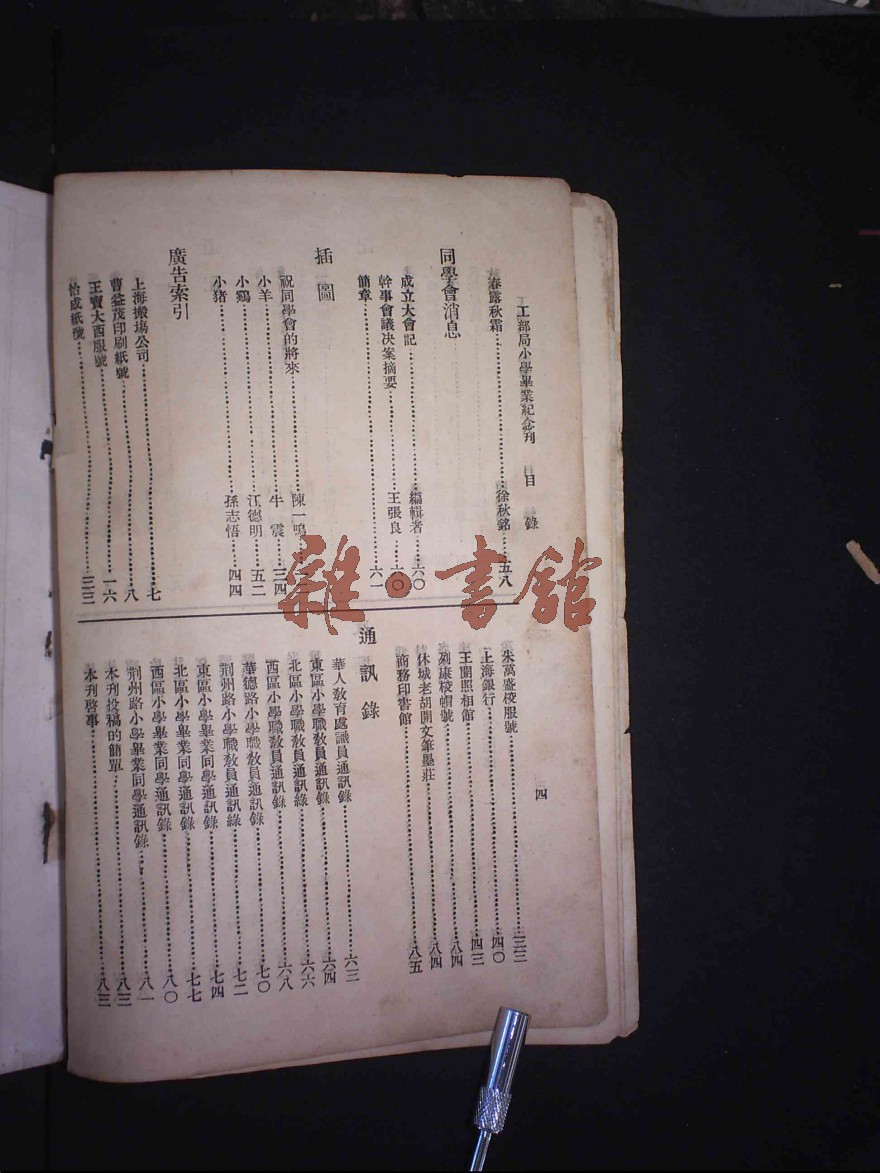 工部局小學畢業紀念刋　目　錄
春露秋霜……徐秋銘……五八
同學會消息
成立大會記……編輯者……六〇
幹事會議决案摘要……王張良……六〇
簡章……六一
插圖
祝同學會的將來……陳一鳴……
小羊……牛　震……三四
小鷄……江德明……五二
小猪……孫志悟……四四
廣告索引
上海搬塲公司……七
曹益茂印刷紙號……八
王寶大西服號……一六
怡成紙號……三三
四
朱萬盛校服號……三三
上海銀行……四〇
王開照相館……四三
列康校帽號……八四
休城老胡開文筆墨莊……八四
商務印書館……八五
通訊錄
華人敎育處議員通訊錄……六三
東區小學職敎員通訊錄……六四
北區小學職敎員通訊錄……六六
西區小學職敎員通訊錄……六八
華德路小學職敎員通訊錄……七〇
荆州路小學職敎員通訊錄……七二
東區小學畢業同學通訊錄……七四
北區小學畢業同學通訊錄……七七
西區小學畢業同學通訊錄……八〇
荆州路小學畢業同學通訊錄……八一
本刋投稿的簡單……八三
本刋啓事……八三
雜·書館